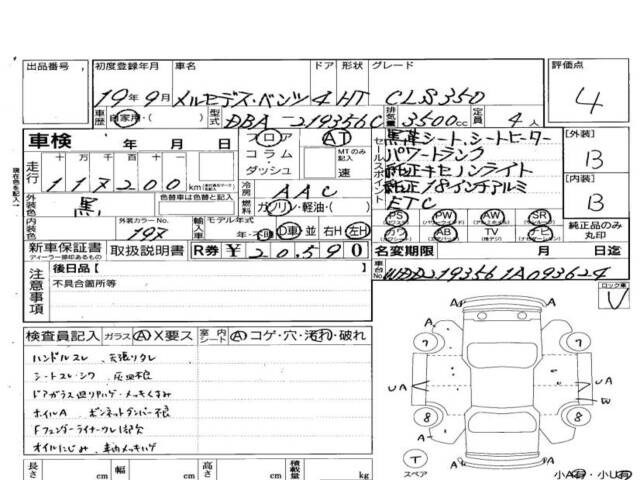 出品番号 初度登録年月 車名 ドア 形状 グレード 評価点
19年9月 メルセデス・ベンツ 4 HT CLS350 4
車歴 自家用・( ) 型式 DBA-219356C 排気量 3500cc 定員 4人
車検 年 月 日 フロア AT 黒革シート、シートヒーター 【外装】
コラム・ダッシュ MTのみ記入 速 セールスポイント パワートランク B
走行 十万千百十一 117200km 純正キセノンライト
冷房 AAC 純正18インチアルミ 【内装】
外装色 黒 色替車は色替と記入 燃料 ガソリン・軽油・( ) ETC B
内装色 外装カラーNo. 197 輸入車 モデル年式 年・不明 D車 並 右H 左H
PS PW AW SR 純正品のみ丸印
カワ AB TV ナビ
新車保証書 取扱説明書 R券 ¥20,590 名変期限 月 日迄
ディーラー捺印あるもの
車台No. WDD2193561A093624
注意事項 後日品【 】 ロック車
不具合箇所等 V
検査員記入 ガラス A X要ス 室内シート A コゲ・穴・汚れ・破れ
ハンドルスレ、天張りタレ
シートスレ・シワ、灰皿不良
ドアガラス廻りハゲ・メッキくすみ
ホイルA ボンネットダンパー不良
Fフェンダーライナーワレ
オイルにじみ
A A
7 7
UA UA A
W
8 8
A A
T
スペア
A A
小A有・小U有
長さ cm 幅 cm 高さ cm 積載量 kg